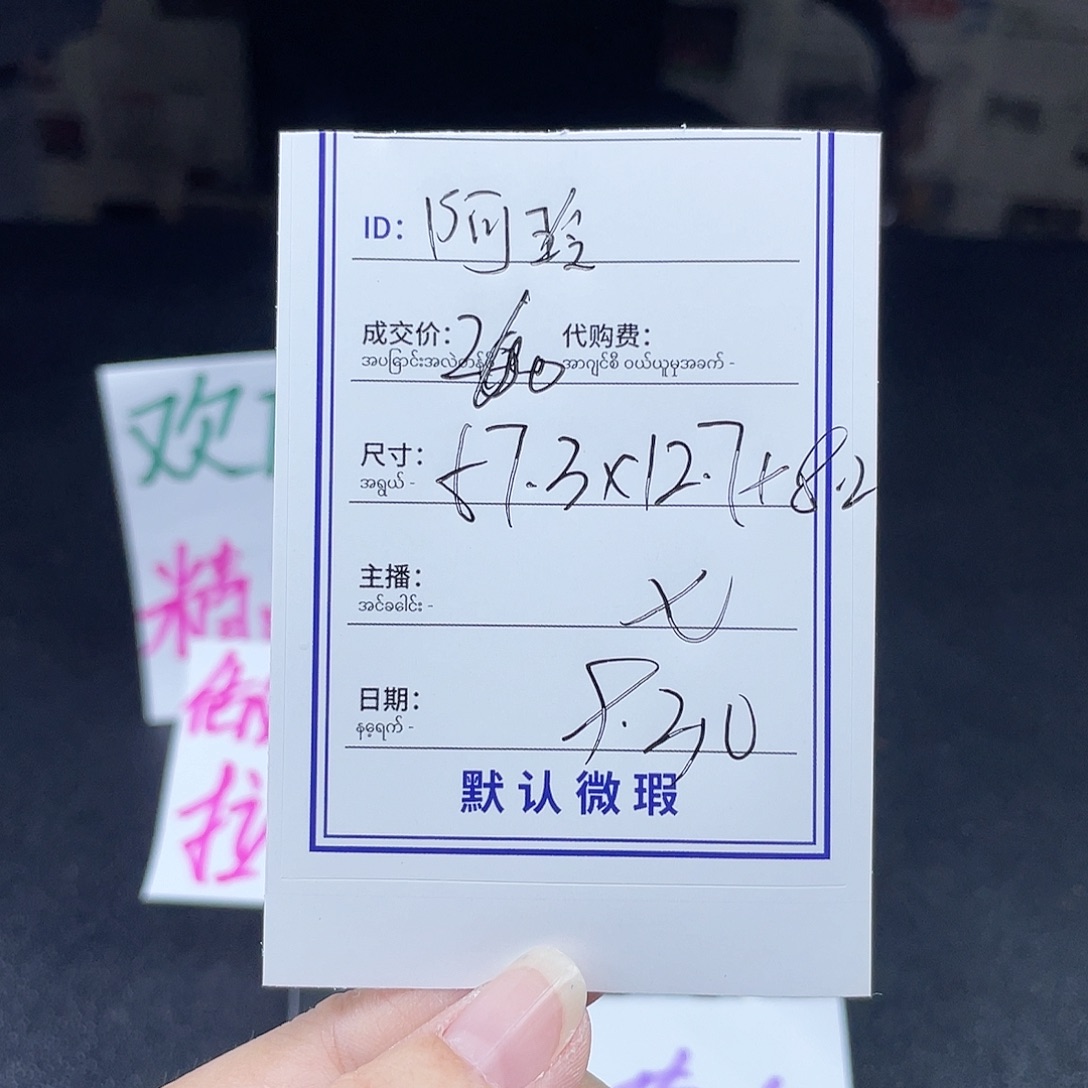 ID: 阿玲
成交价: 代购费:
အပြောင်းအလဲတန်ဖိုး အာဂျင်စီ ဝယ်ယူမှုအခက် -
尺寸: 57.3×12.7+8.2
အရွယ် -
主播:
အင်ခေါင်း -
日期:
နေ့ရက် -
默认微瑕
欢
精
拉